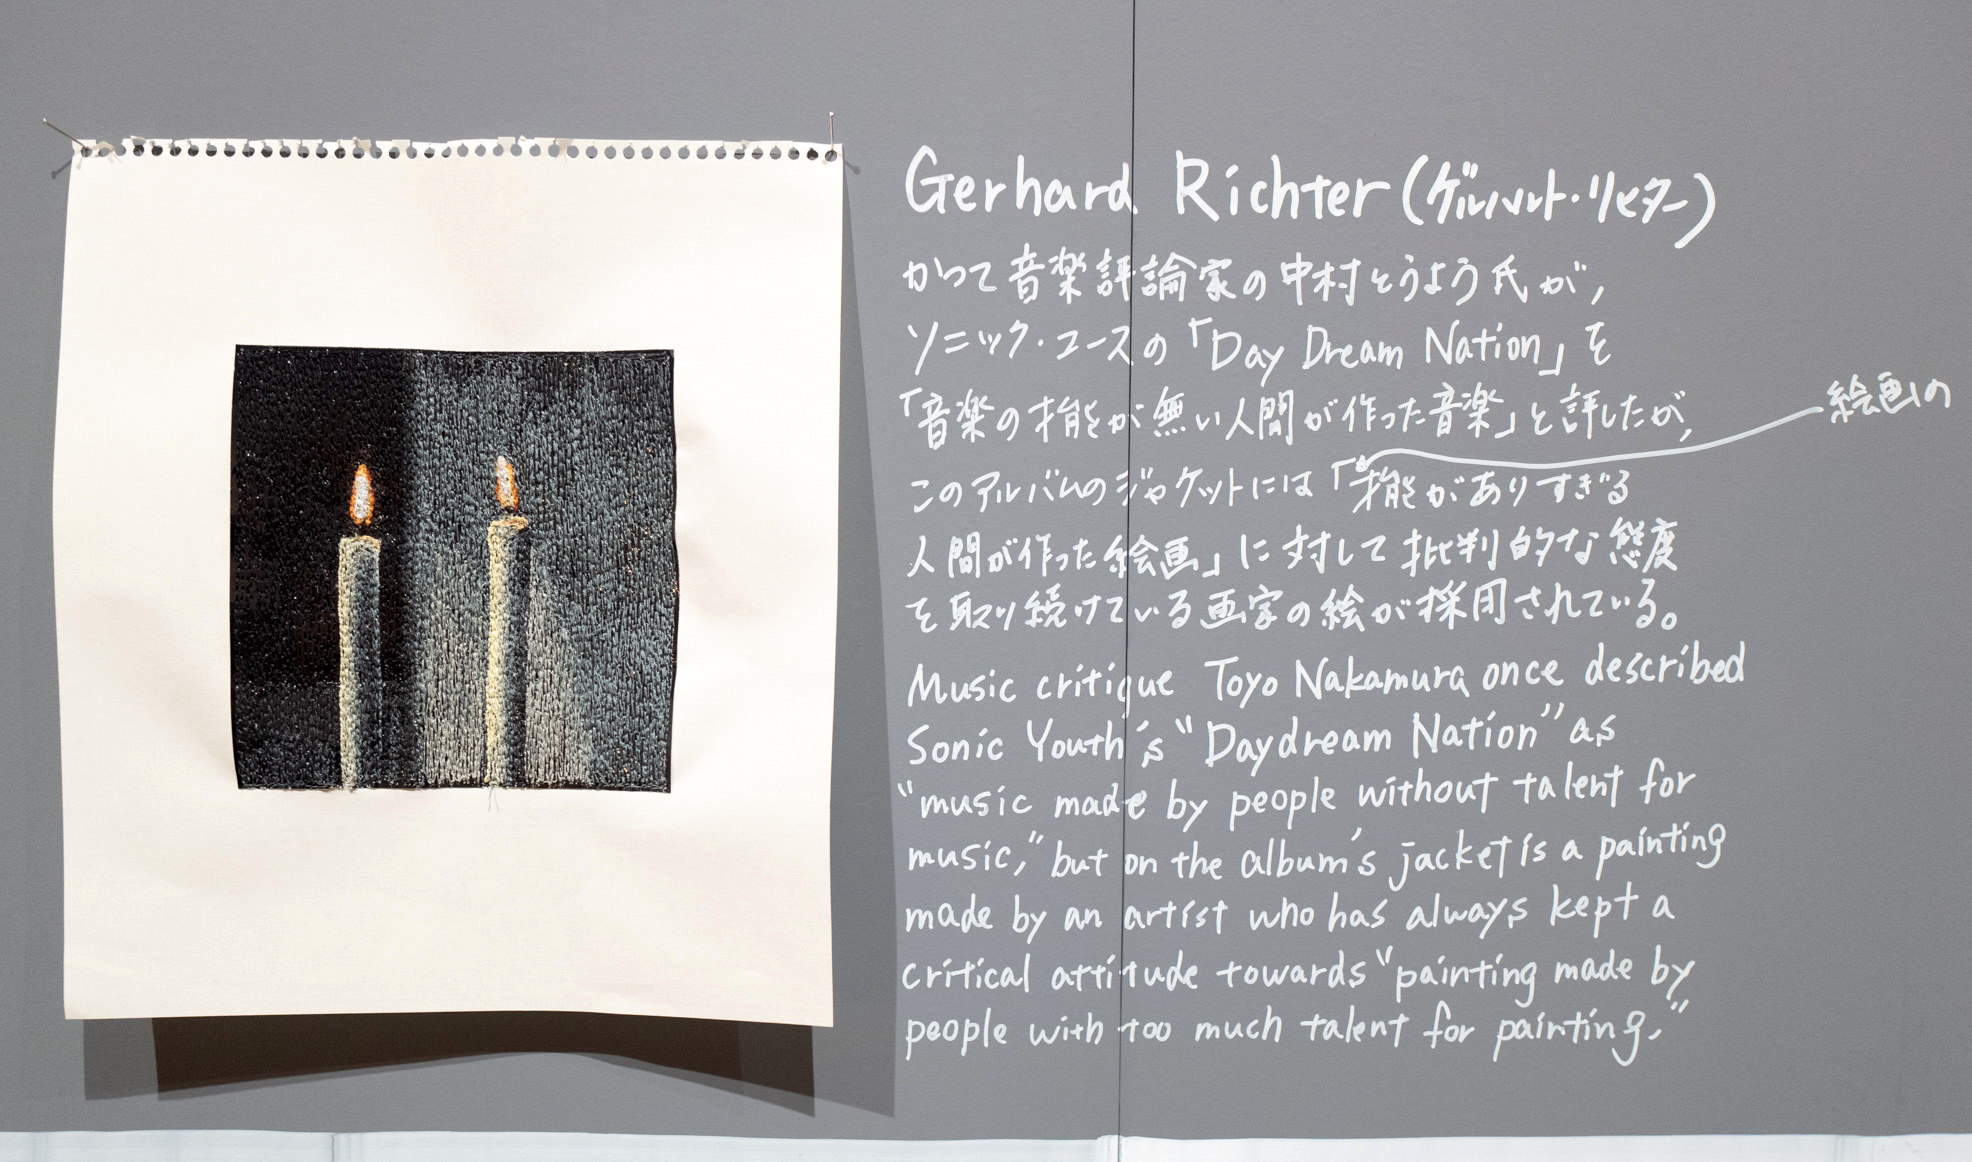 Gerhard Richter (ゲルハルト・リヒター)
かつて音楽評論家の中村とうよう氏が,
ソニック・ユースの「Day Dream Nation」を
「音楽の才能が無い人間が作った音楽」と評したが,
絵画の
このアルバムのジャケットには「才能がありすぎる
人間が作った絵画」に対して批判的な態度
を取り続けている画家の絵が採用されている。
Music critique Toyo Nakamura once described
Sonic Youth's "Daydream Nation" as
"music made by people without talent for
music," but on the album's jacket is a painting
made by an artist who has always kept a
critical attitude towards "painting made by
people with too much talent for painting."